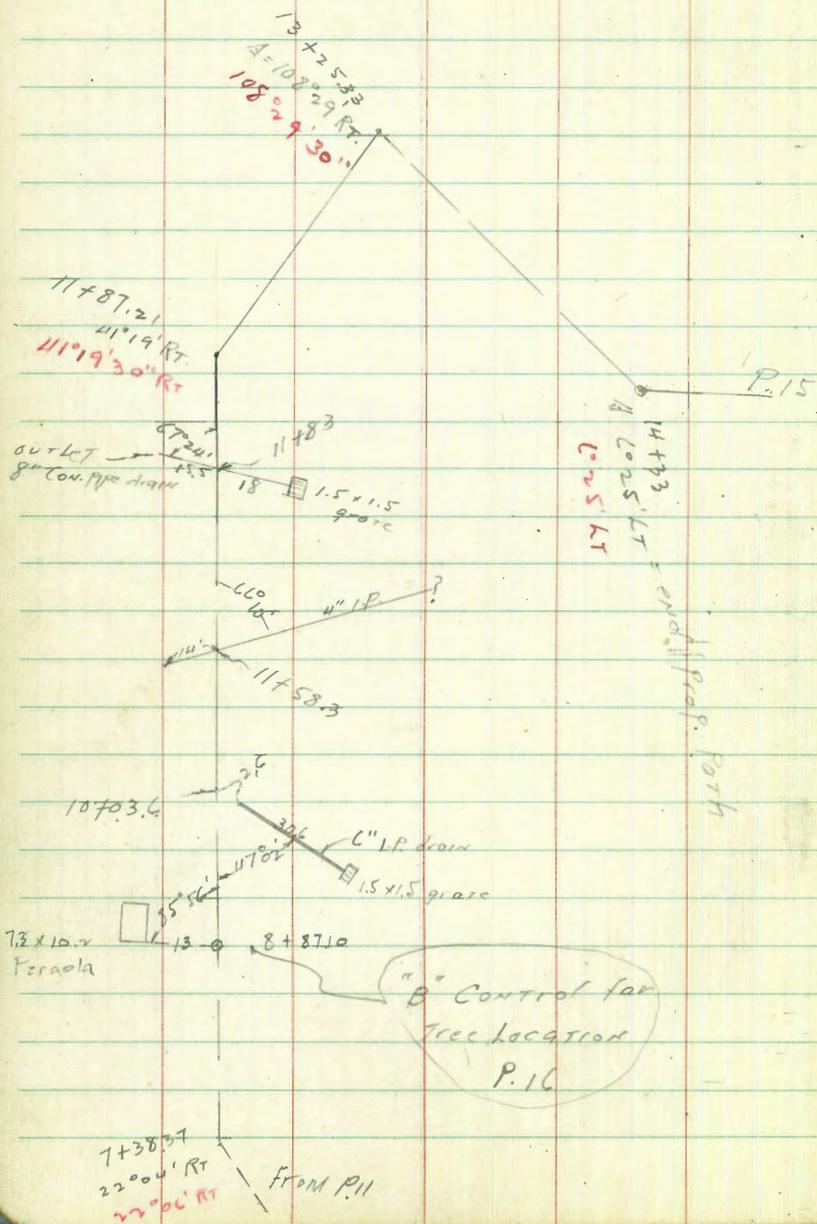 13+25.33
Δ=108°29' RT.
108°29'30"
11+87.21
41°19' RT.
41°19'30" RT
P.15
14+33
6°25' LT = end Prop. Path
6°25' LT
67°24'
11+83
OUTLET
8" Con. Pipe drain
15.5
18
1.5 x 1.5
grate
66°
10'
4" I.P.
?
14'
11+58.3
2.6
10+03.6
30.6
6" I.P. drain
117°02'
1.5 x 1.5 grate
85°56'
7.3 x 10.2
Pergola
13
8+87.10
"B" Control for
Tree Location
P.16
7+38.37
22°04' RT
22°06' RT
From P.11